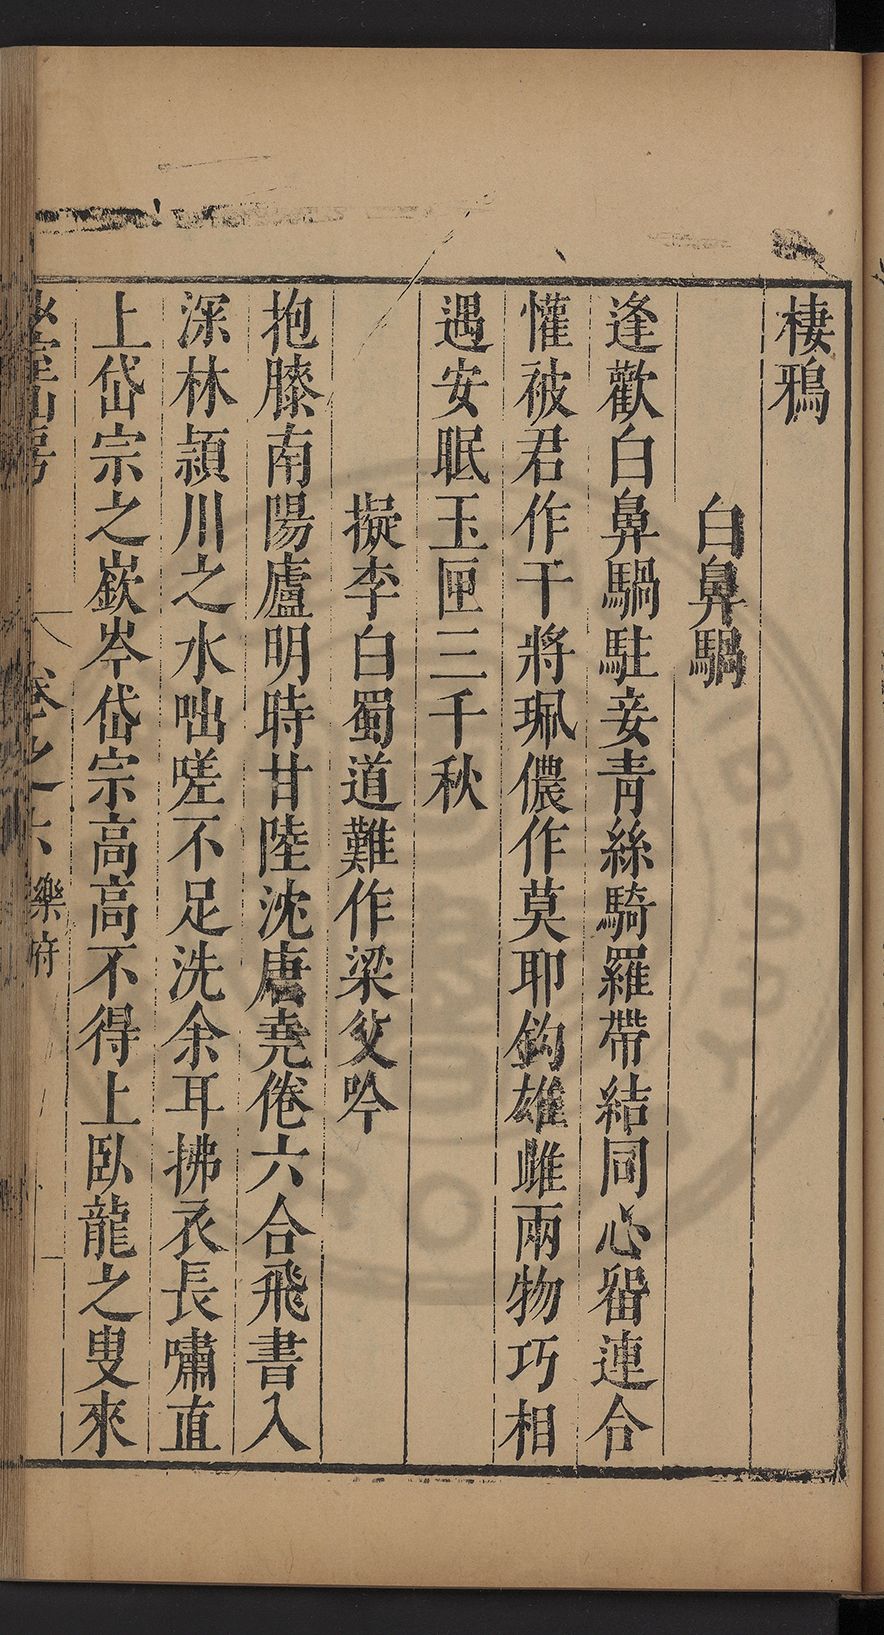 棲鴉
白鼻騧
逢歡白鼻騧駐妾青絲騎羅帶結同心留連合
懽被君作干將珮儂作莫耶鈎雄雌兩物巧相
遇安眠玉匣三千秋
擬李白蜀道難作梁父吟
抱膝南陽廬明時甘陸沈唐堯倦六合飛書入
深林潁川之水咄嗟不足洗余耳拂衣長嘯直
上岱宗之嶔岑岱宗高高不得上臥龍之叟來
卷之六 樂府